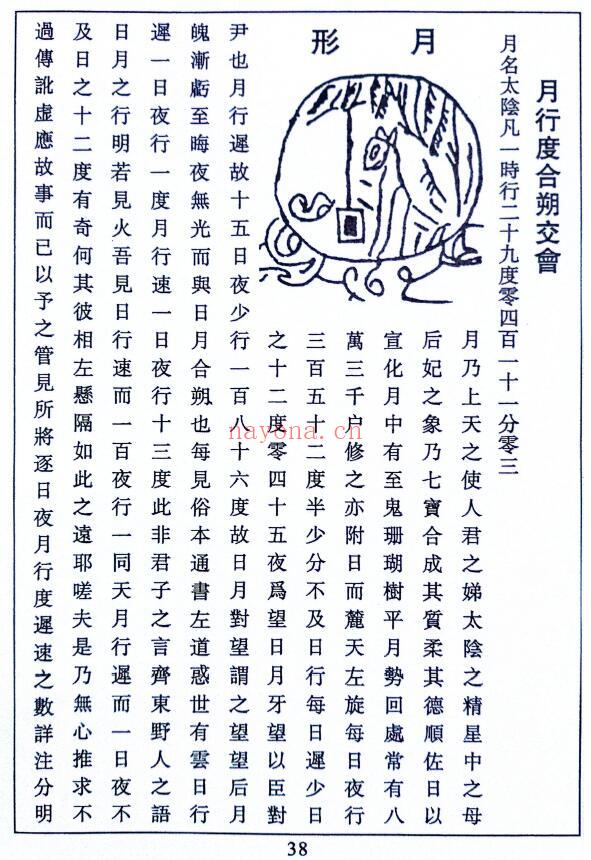 月行度合朔交會
月名太陰凡一時行二十九度零四百一十一分零三
月形
月乃上天之使人君之娣太陰之精星中之母
后妃之象乃七寶合成其質柔其德順佐日以
宣化月中有至鬼珊瑚樹平月勢回處常有八
萬三千户修之亦附日而麓天左旋每日夜行
三百五十二度半少分不及日行每日遲少日
之十二度零四十五夜爲望日月牙望以臣對
尹也月行遲故十五日夜少行一百八十六度故日月對望謂之望望后月
魄漸虧至晦夜無光而與日月合朔也每見俗本通書左道惑世有雲日行
遲一日夜行一度月行速一日夜行十三度此非君子之言齊東野人之語
日月之行明若見火吾見日行速而一百夜行一同天月行遲而一日夜不
及日之十二度有奇何其彼相左懸隔如此之遠耶嗟夫是乃無心推求不
過傳訛虛應故事而已以予之管見所將逐日夜月行度遲速之數詳注分明
nayona.cn
38